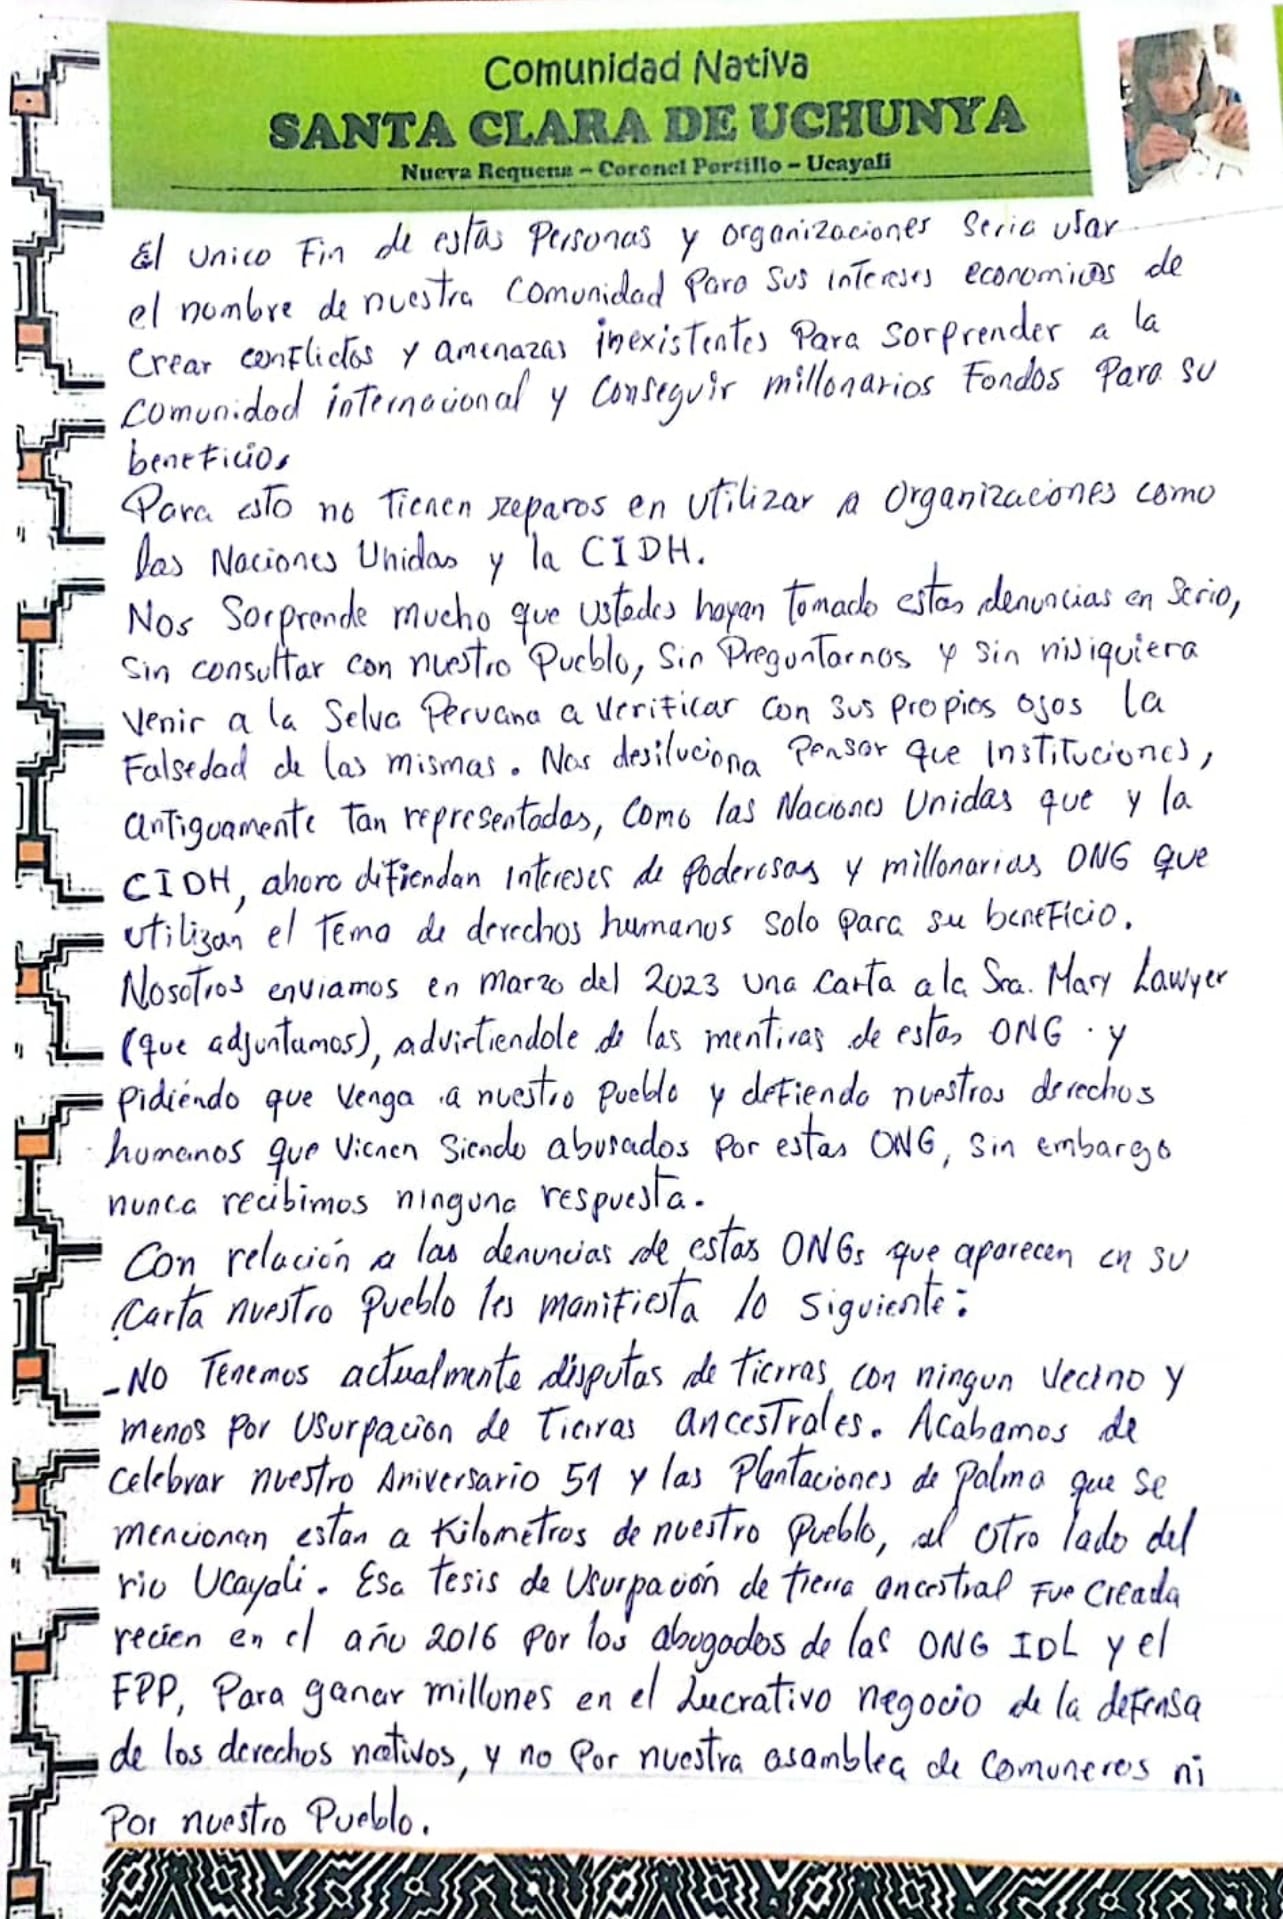 Comunidad Nativa
SANTA CLARA DE UCHUNYA
Nueva Requena – Coronel Portillo – Ucayali
El unico Fin de estas Personas y organizaciones seria usar
el nombre de nuestra comunidad Para Sus intereses economicos de
Crear conflictos y amenazas inexistentes Para sorprender a la
comunidad internacional y conseguir millonarios Fondos Para su
beneficio.
Para esto no tienen reparos en utilizar a Organizaciones como
las Naciones Unidas y la CIDH.
Nos Sorprende mucho que ustedes hayan tomado estas denuncias en Serio,
Sin consultar con nuestro Pueblo, Sin Preguntarnos y sin nisiquiera
Venir a la Selva Peruana a verificar con sus propios ojos la
Falsedad de las mismas. Nos desiluciona Pensar que Instituciones,
antiguamente tan representadas, como las Naciones Unidas que y la
CIDH, ahora difiendan intereses de Poderosas y millonarias ONG que
utilizan el Tema de derechos humanos solo para su beneficio.
Nosotros enviamos en marzo del 2023 una carta a la Sra. Mary Lawyer
(que adjuntamos), advirtiendole de las mentiras de estas ONG y
pidiéndo que Venga a nuestro pueblo y defienda nuestros derechos
humanos que Vienen Siendo abusados Por estas ONG, Sin embargo
nunca recibimos ninguna respuesta.
Con relación a las denuncias de estas ONGs que aparecen en su
Carta nuestro Pueblo les manifiesta lo siguiente:
-No Tenemos actualmente disputas de tierras con ningun Vecino y
menos por Usurpacion de Tierras ancestrales. Acabamos de
celebrar nuestro Aniversario 51 y las Plantaciones de palma que se
mencionan estan a Kilometros de nuestro Pueblo, al otro lado del
rio Ucayali. Esa Tesis de Usurpación de tierra ancestral Fue Creada
recien en el año 2016 Por los abogados de las ONG IDL y el
FPP, Para ganar millones en el Lucrativo negocio de la defensa
de los derechos nativos, y no Por nuestra asamblea de Comuneros ni
Por nuestro Pueblo.